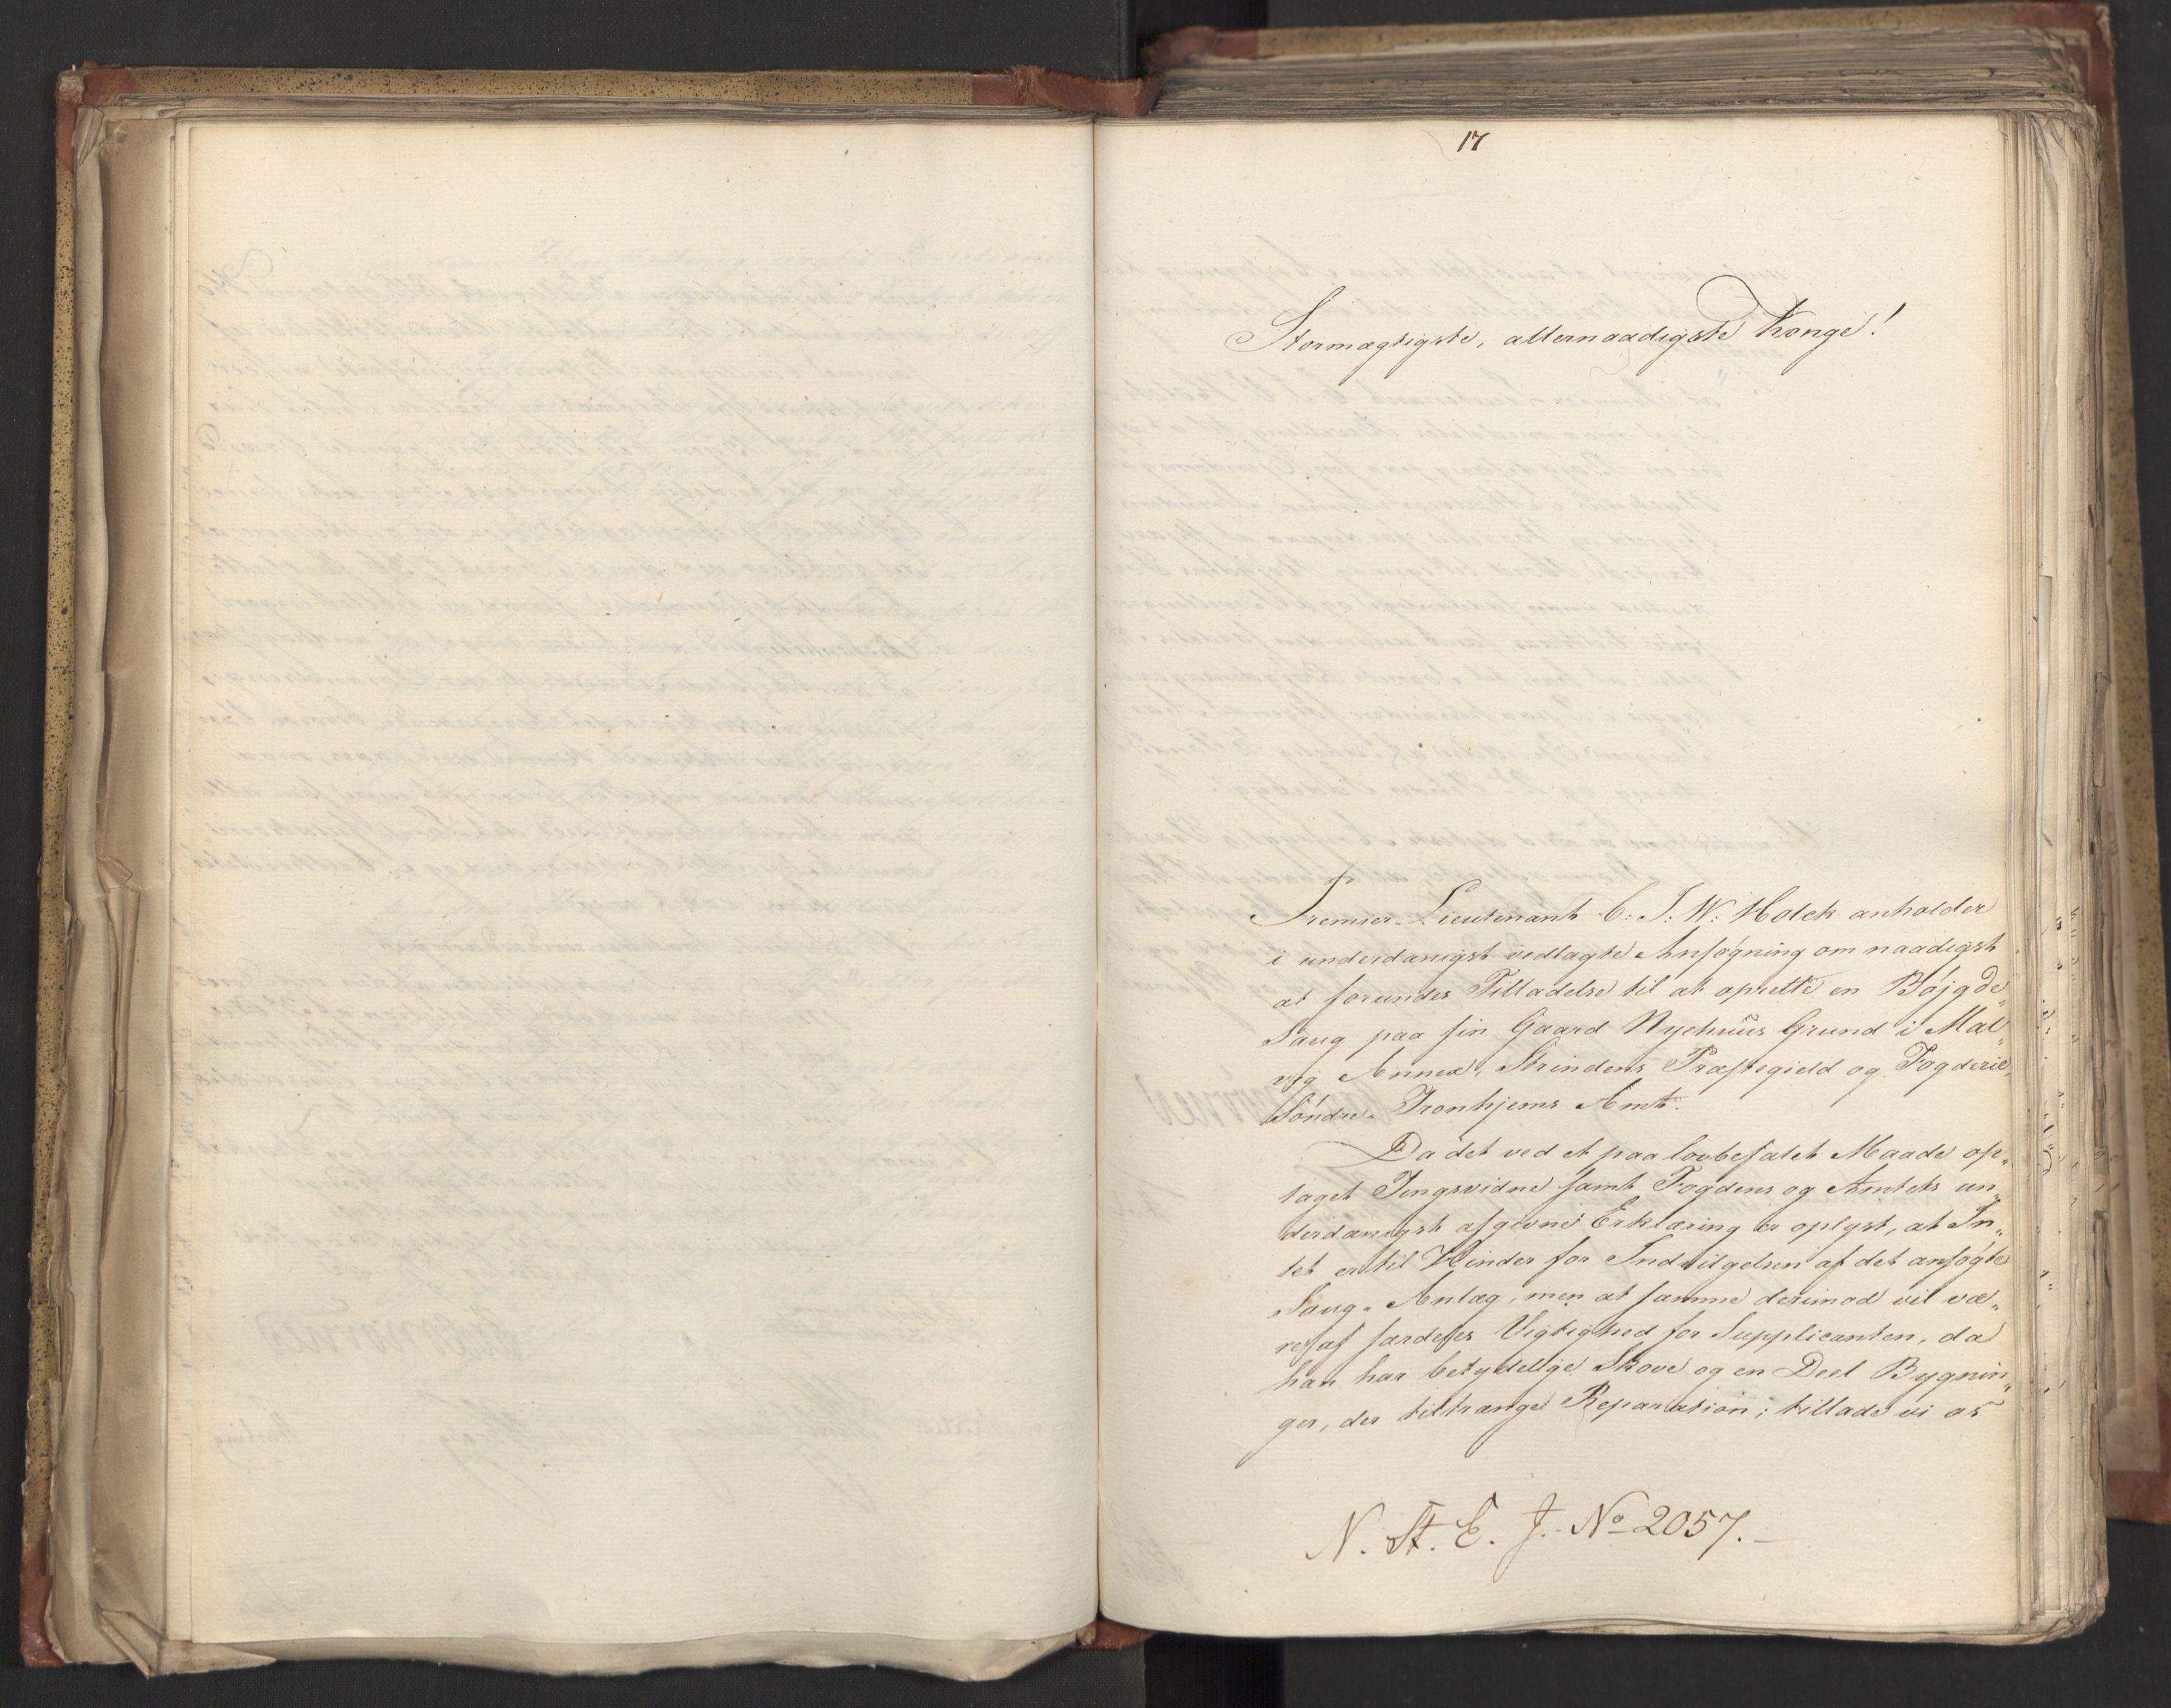 17
Stormægtigste, allernaadigste Konge!
Premier-Lieutenant C: J: W: Holck anholder
i underdanigst vedlagte Ansøgning om naadigst
at forundes Tilladelse til at oprette en Bøjgde„
Saug paa sin Gaard Nyehuus Grund i Mal„
vig Annex, Strindens Præstegield og Fogderie,
Søndre-Tronhjems Amt.
Da det ved et paa lovbefalet Maade op„
taget Tingsvidne samt Fogdens og Amtets un„
derdanigst afgivne Erklæring er oplyst, at In„
tet er til Hinder for Indvilgelsen af det ansøgte
Saug-Anlæg, men at samme derimod vil væ„
re af særdeles Vigtighed for Supplicanten, da
han har betydelige Skove og en Deel Bygnin„
ger, der tiltrænge Reparation; tillade vi os
N. St. E. J. No 2057.